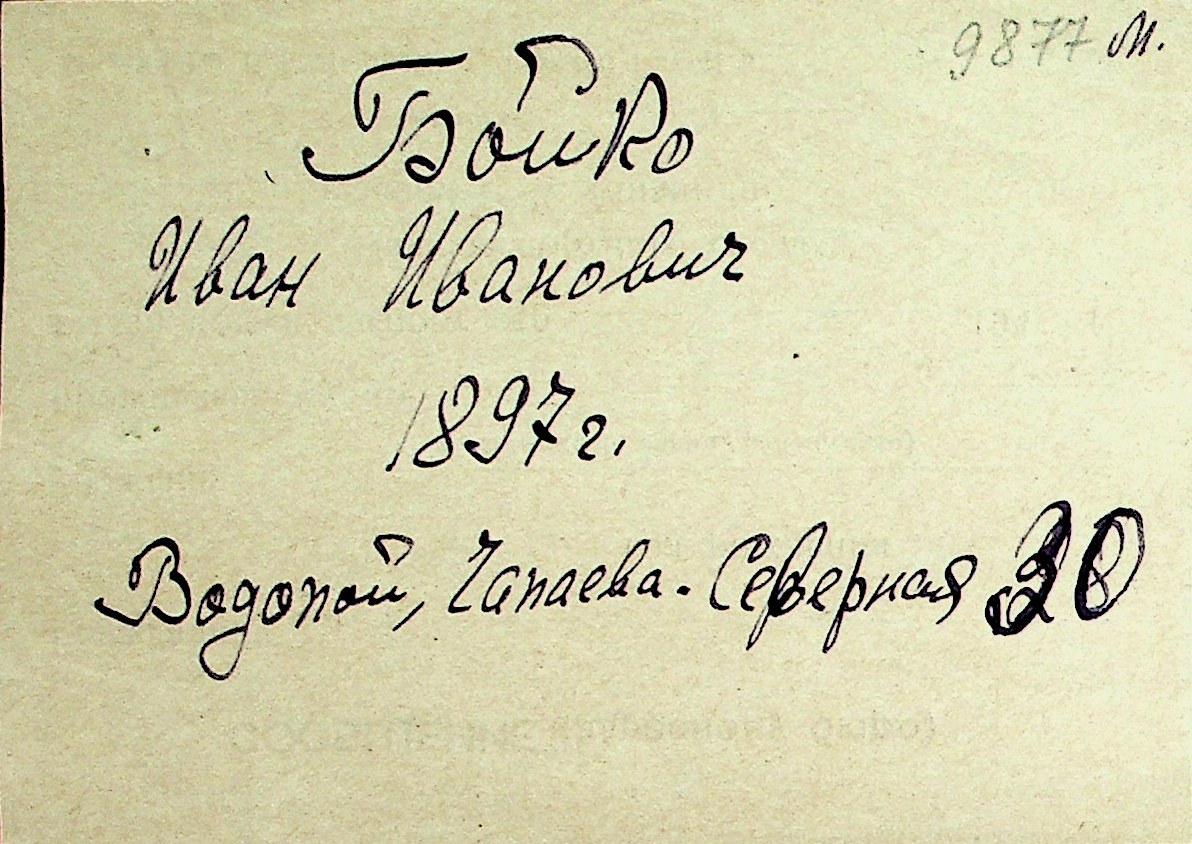 9877 м.
Бойко
Иван Иванович
1897 г.
Водопой, Чапаева-Северная 30